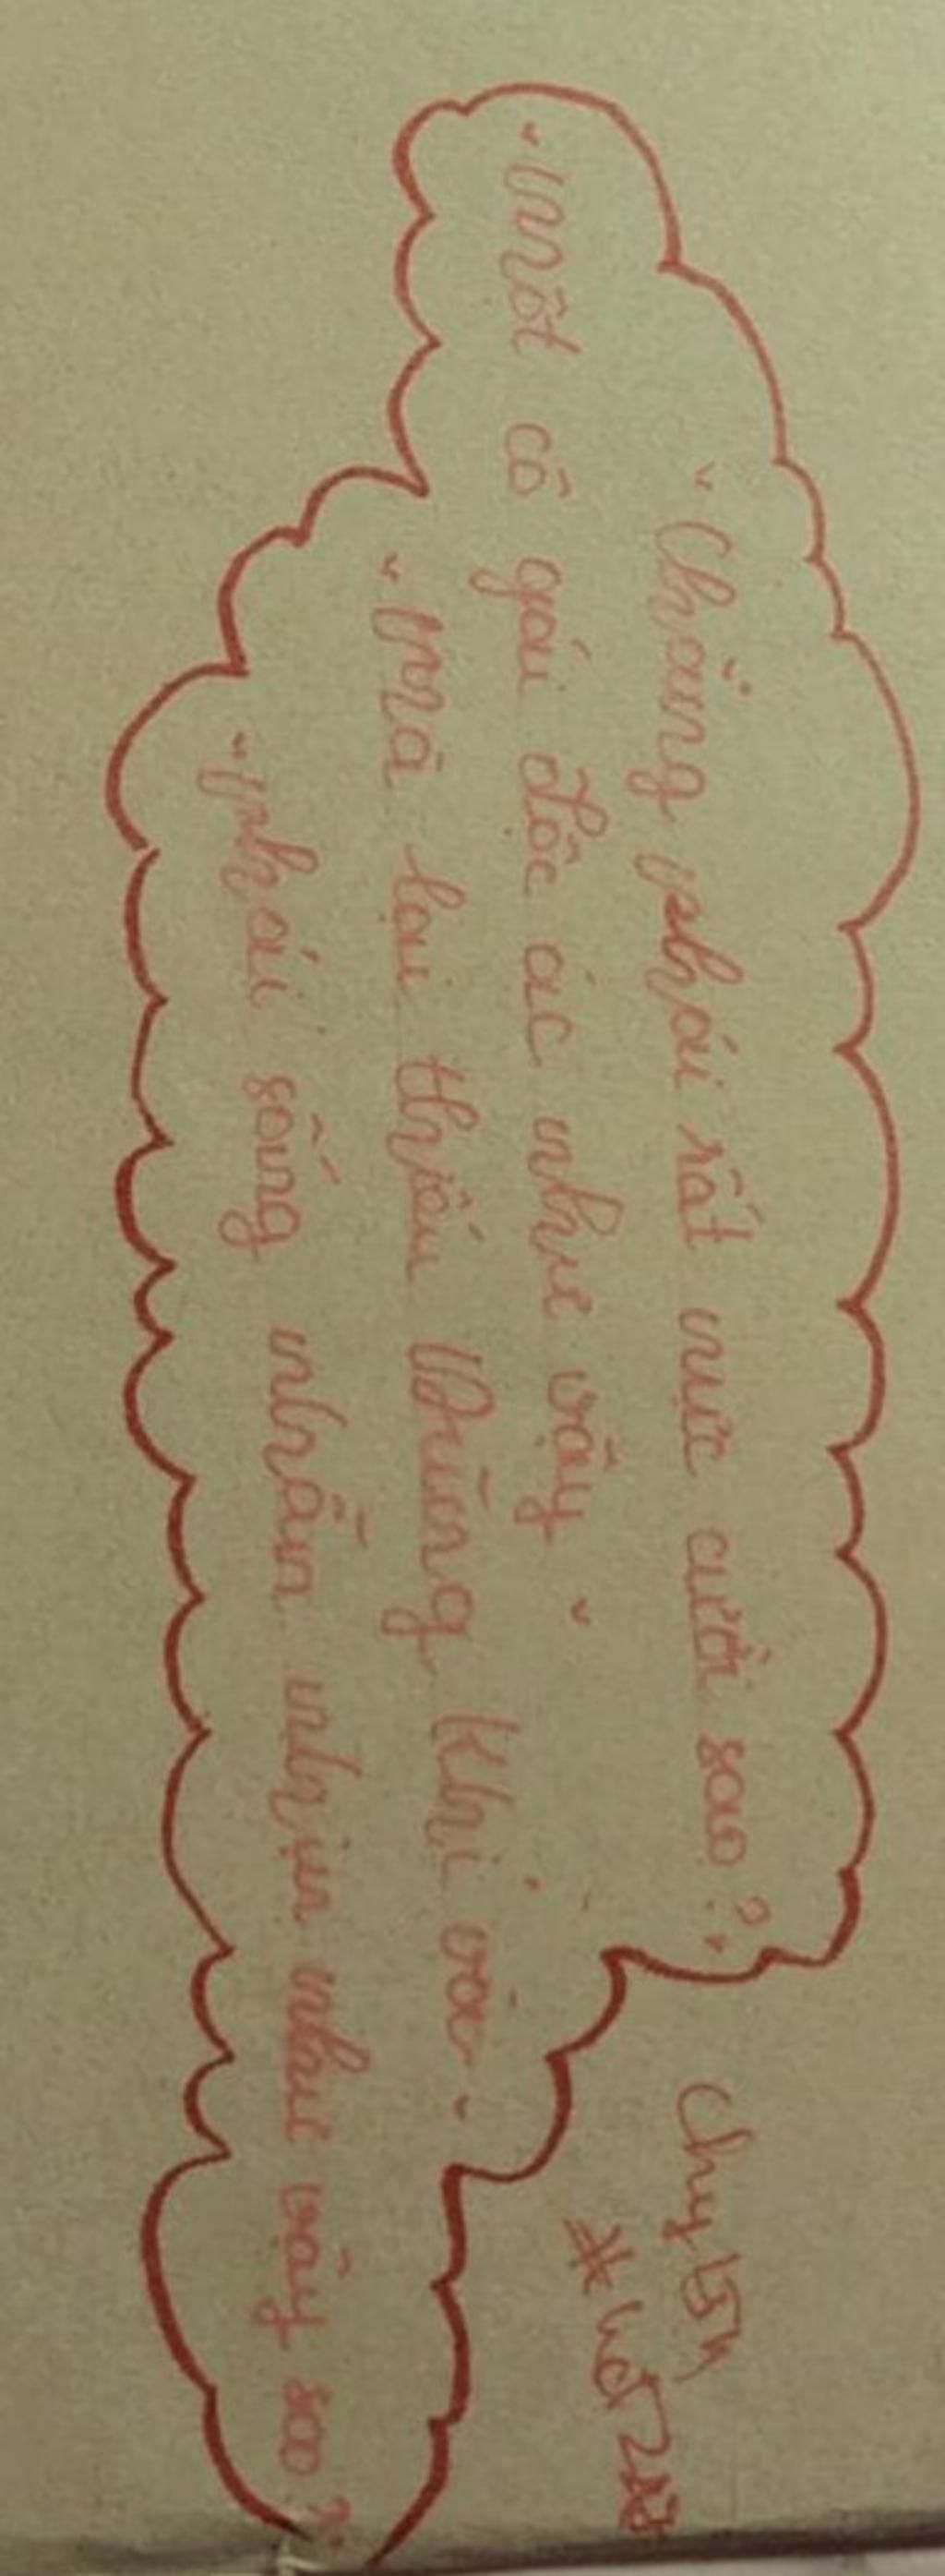 "Chẳng phải rất nực cười sao?"
"một cô gái độc ác như vậy"
"Mà lại thiếu Đúng khi vào"
"phải sống nhẫn nhịn như vậy sao?"